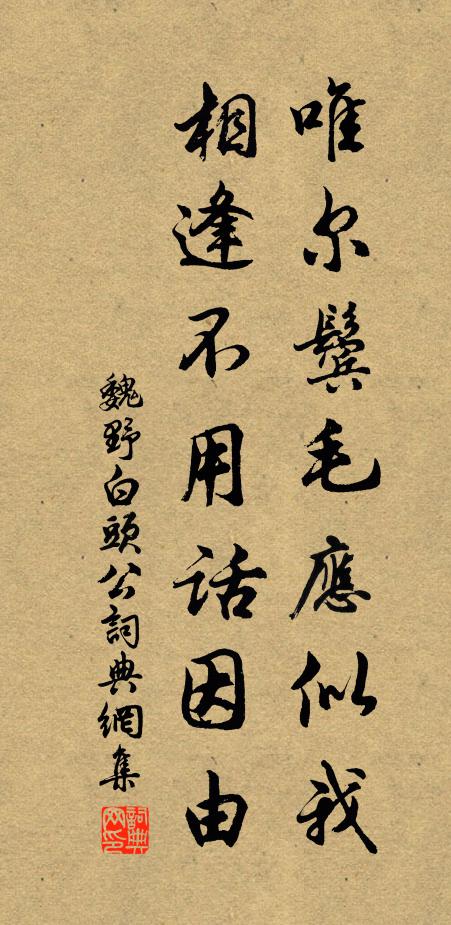 唯尔鬓毛應似我
相逢不用話因由
魏野白頭公詞典網集
詞典网印